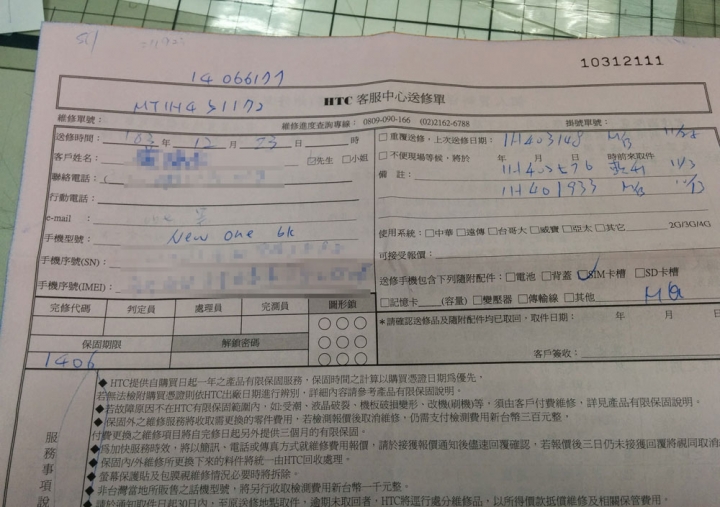 10312111
14066177
HTC 客服中心送修單
維修單號： 維修進度查詢專線： 0809-090-166 (02)2162-6788 掛號單號：
送修時間： 103 年 12 月 23 日 時
□重覆送修，上次送修日期：
客戶姓名： ☑先生 □小姐
□不便現場等候，將於 年 月 日 時前來取件
聯絡電話：(
備 註：
行動電話：
e-mail ：
使用系統：□中華 □遠傳 □台哥大 □威寶 □亞太 □其它 2G/3G/4G
手機型號： New one bk
可接受報價：
手機序號(SN)：
送修手機包含下列隨附配件：□電池 □背蓋 ☑SIM卡槽 □SD卡槽
手機序號(IMEI)：
□記憶卡 (容量) □變壓器 □傳輸線 □其他
完修代碼 判定員 處理員 完測員 圖形鎖
*請確認送修品及隨附配件均已取回，取件日期： 年 月 日
保固期限 解鎖密碼
客戶簽收：
1406
服務事項說
◆ HTC提供自購買日起一年之產品有限保固服務，保固時間之計算以購買憑證日期為優先，
若無法檢附購買憑證則依HTC出廠日期進行辨別，詳細內容請參考產品有限保固說明。
◆ 若故障原因不在HTC有限保固範圍內，如:受潮、液晶破裂、機板破損變形、改機(刷機)等，須由客戶付費維修，詳見產品有限保固說明。
◆ 保固外之維修服務將收取需更換的零件費用，若檢測報價後取消維修，仍需支付檢測費用新台幣三百元整，
付費更換之維修項目將自完修日起另外提供三個月的有限保固。
◆ 為加快服務時效，將以簡訊、電話或傳真方式就維修費用報價，請於接獲報價通知後儘速回覆確認，若報價後三日仍未接獲回覆將視同取消
◆ 保固內/外維修所更換下來的料件將統一由HTC回收處理。
◆ 螢幕保護貼及包膜視維修情況必要時將拆除。
◆ 非台灣當地所販售之話機型號，將另行收取檢測費用新台幣一千元整。